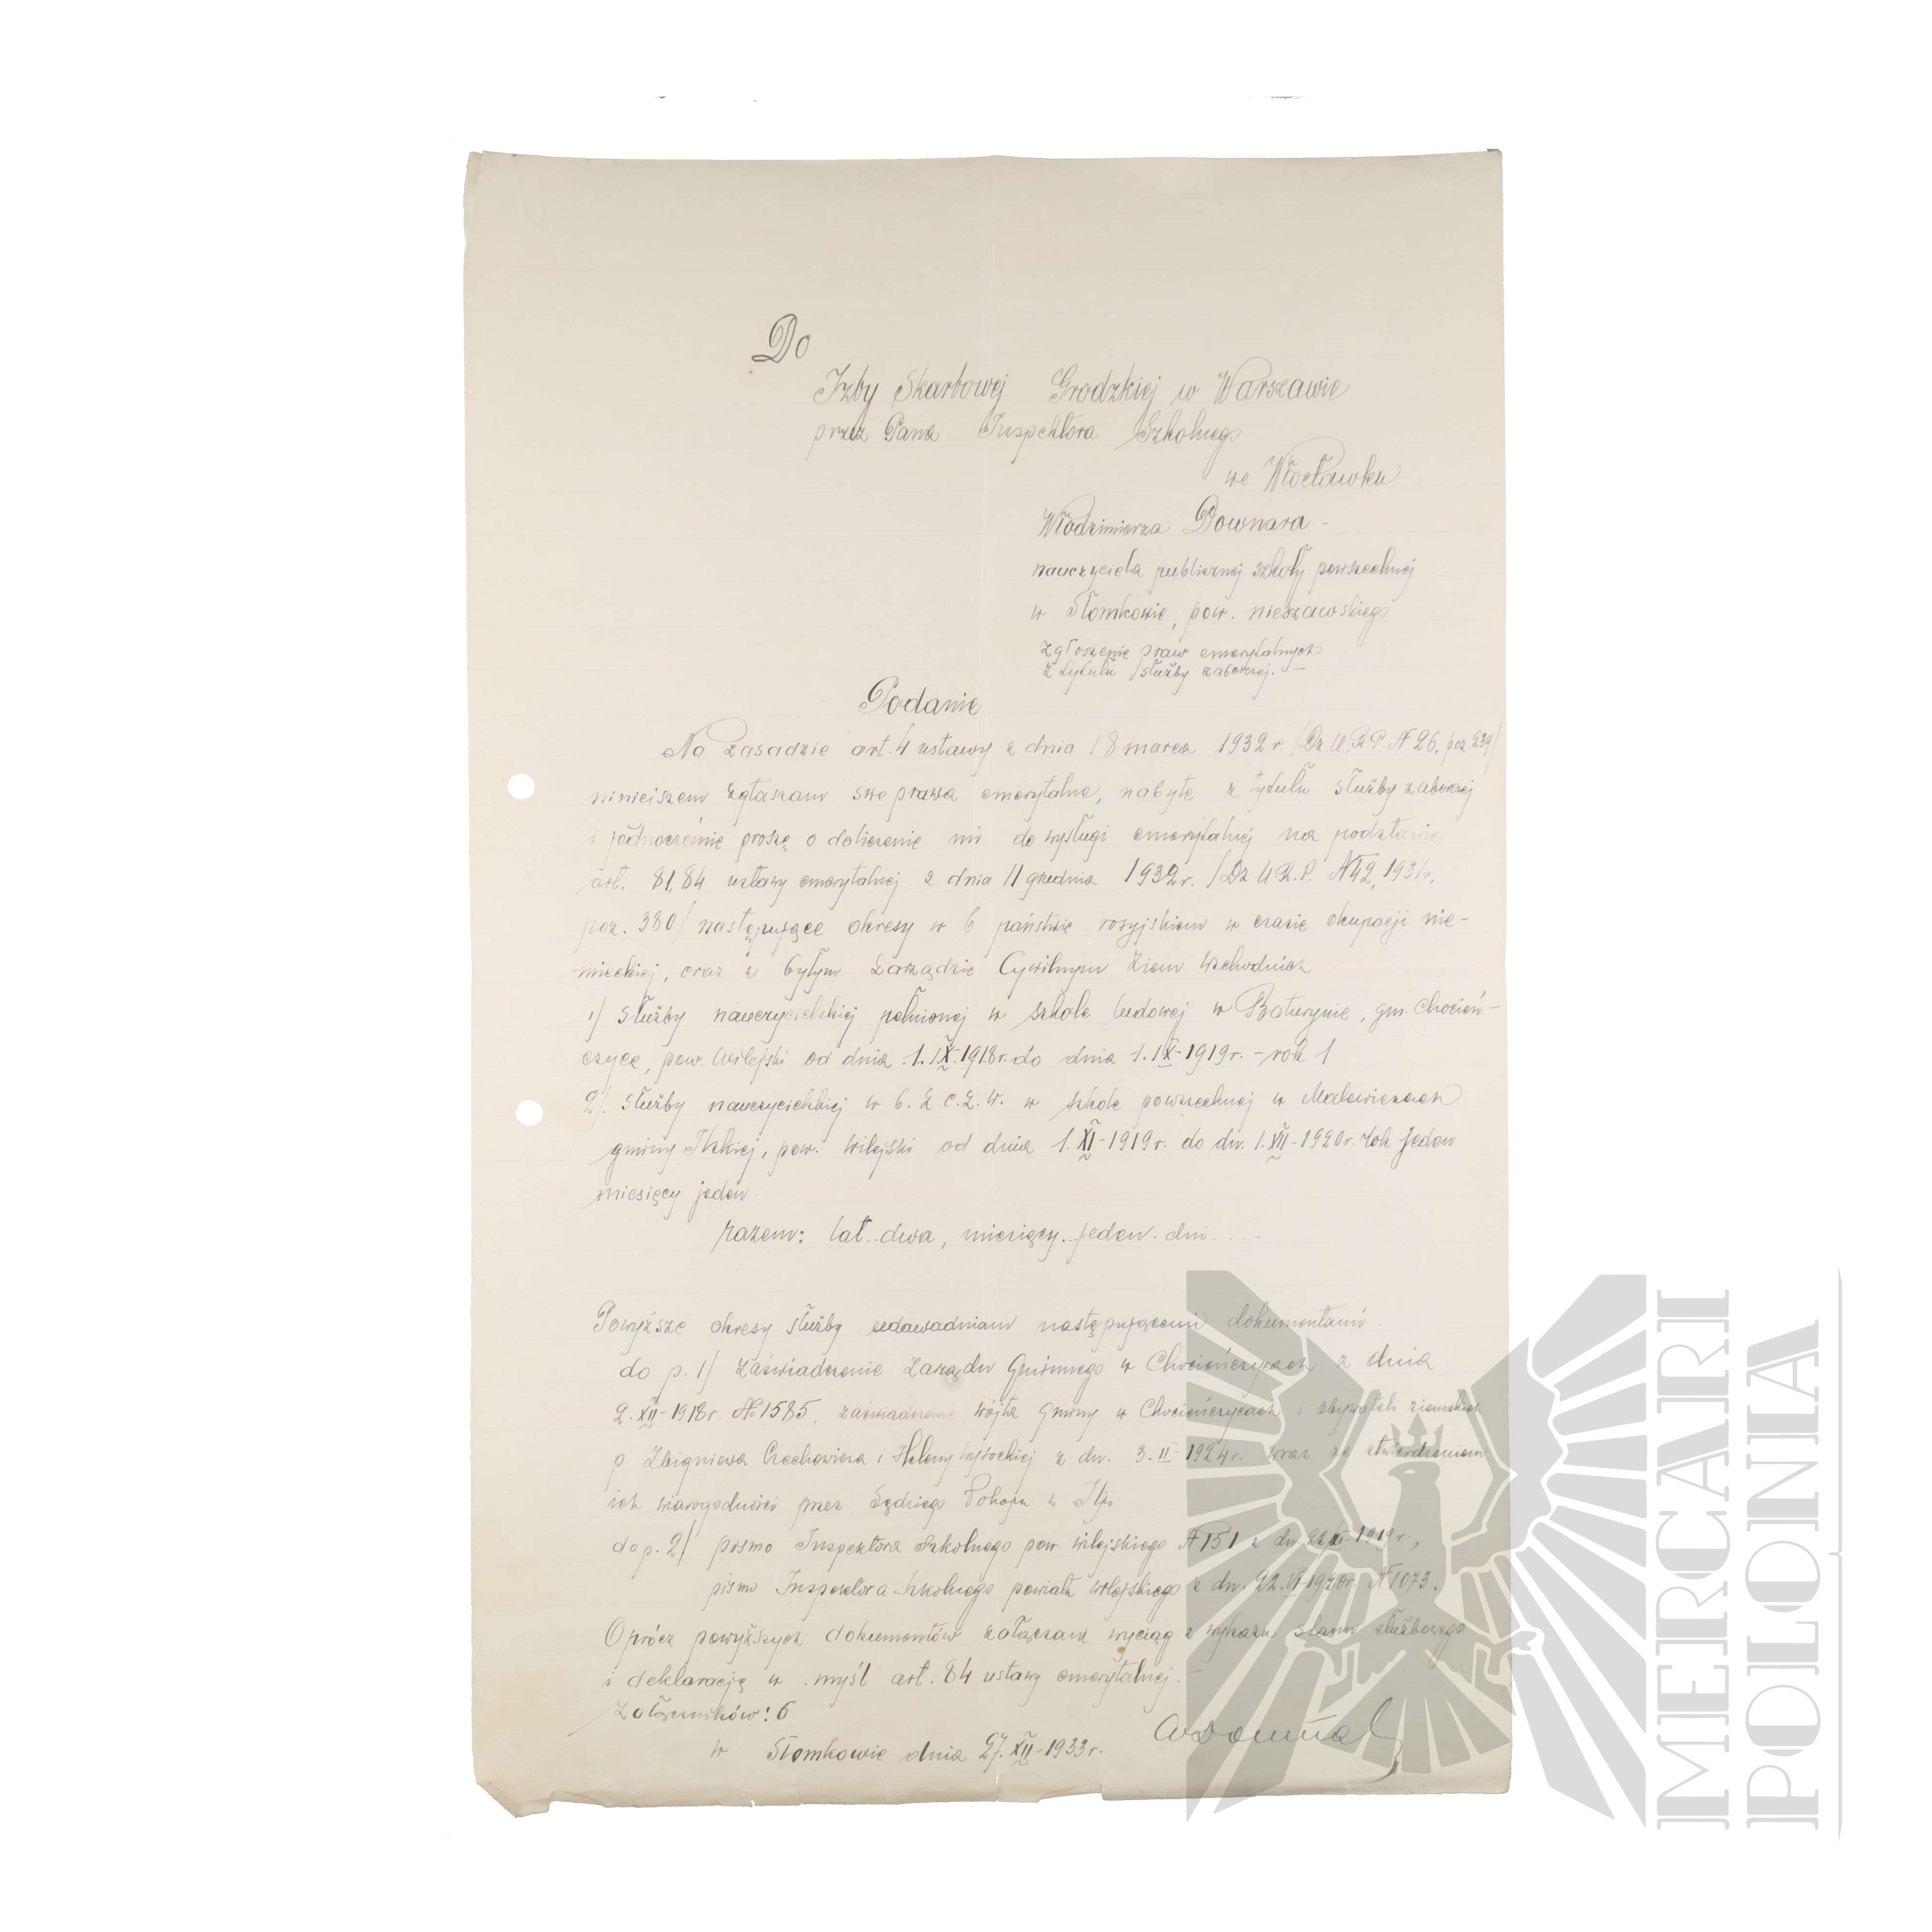 Do
Izby Skarbowej Grodzkiej w Warszawie
przez Pana Inspektora Szkolnego
we Włocławku
Włodzimierza Downara -
nauczyciela publicznej szkoły powszechnej
w Słomkowie, pow. nieszawskiego
zgłoszenie praw emerytalnych
z tytułu służby zaborczej. -
Podanie
Na zasadzie art. 4 ustawy z dnia 18 marca 1932 r. /Dz. U. R. P. № 26, poz. 239/
niniejszem zgłaszam swe prawa emerytalne, nabyte z tytułu służby zaborczej
i jednocześnie proszę o doliczenie mi do wysługi emerytalnej na podstawie
art. 81, 84 ustawy emerytalnej z dnia 11 grudnia 1932 r. /Dz. U. R. P. № 42, 1934,
poz. 380/ następujące okresy w b państwie rosyjskiem w czasie okupacji nie-
-mieckiej, oraz w byłym Zarządzie Cywilnym Ziem Wschodnich
1/ służby nauczycielskiej pełnionej w szkole ludowej w Baturynie, gm. Chocień-
czyce, pow. Wilejski od dnia 1. IX. 1918 r. do dnia 1. IX - 1919 r. - rok 1
2/. służby nauczycielskiej w b. Z. C. Z. W. w szkole powszechnej w Malewiczach
gminy Ilskiej, pow. Wilejski od dnia 1. XI - 1919 r. do dn. 1. XII - 1920 r. rok jeden
miesięcy jeden.
razem: lat..dwa, miesięcy..jeden. dni....
Powyższe okresy służby udawadniam następującemi dokumentami.
do p. 1/ Zaświadczenie Zarządu Gminnego w Chocieńczycach z dnia
2. XII - 1918 r. № 1585, zaświadczenie Wójta Gminy w Chocieńczycach i obywateli ziemskich
p. Zbigniewa Czechowicza i Heleny Wysockiej z dn. 3. II - 1924 r. wraz ze stwierdzeniem
ich wiarogodności przez Sędziego Pokoju w Ilji
do p. 2/ pismo Inspektora Szkolnego pow. wilejskiego № 151 z dn. 22 XI - 1919 r.,
pismo Inspektora Szkolnego powiatu wilejskiego z dn. 22. VI - 1920 r. № 1073.
Oprócz powyższych dokumentów załączam wyciąg z wykazu stanu służbowego
i deklarację w myśl art. 84 ustawy emerytalnej. -
Załączników: 6
w Słomkowie dnia 27. XII - 1933 r.
MERCARI
POLONIA